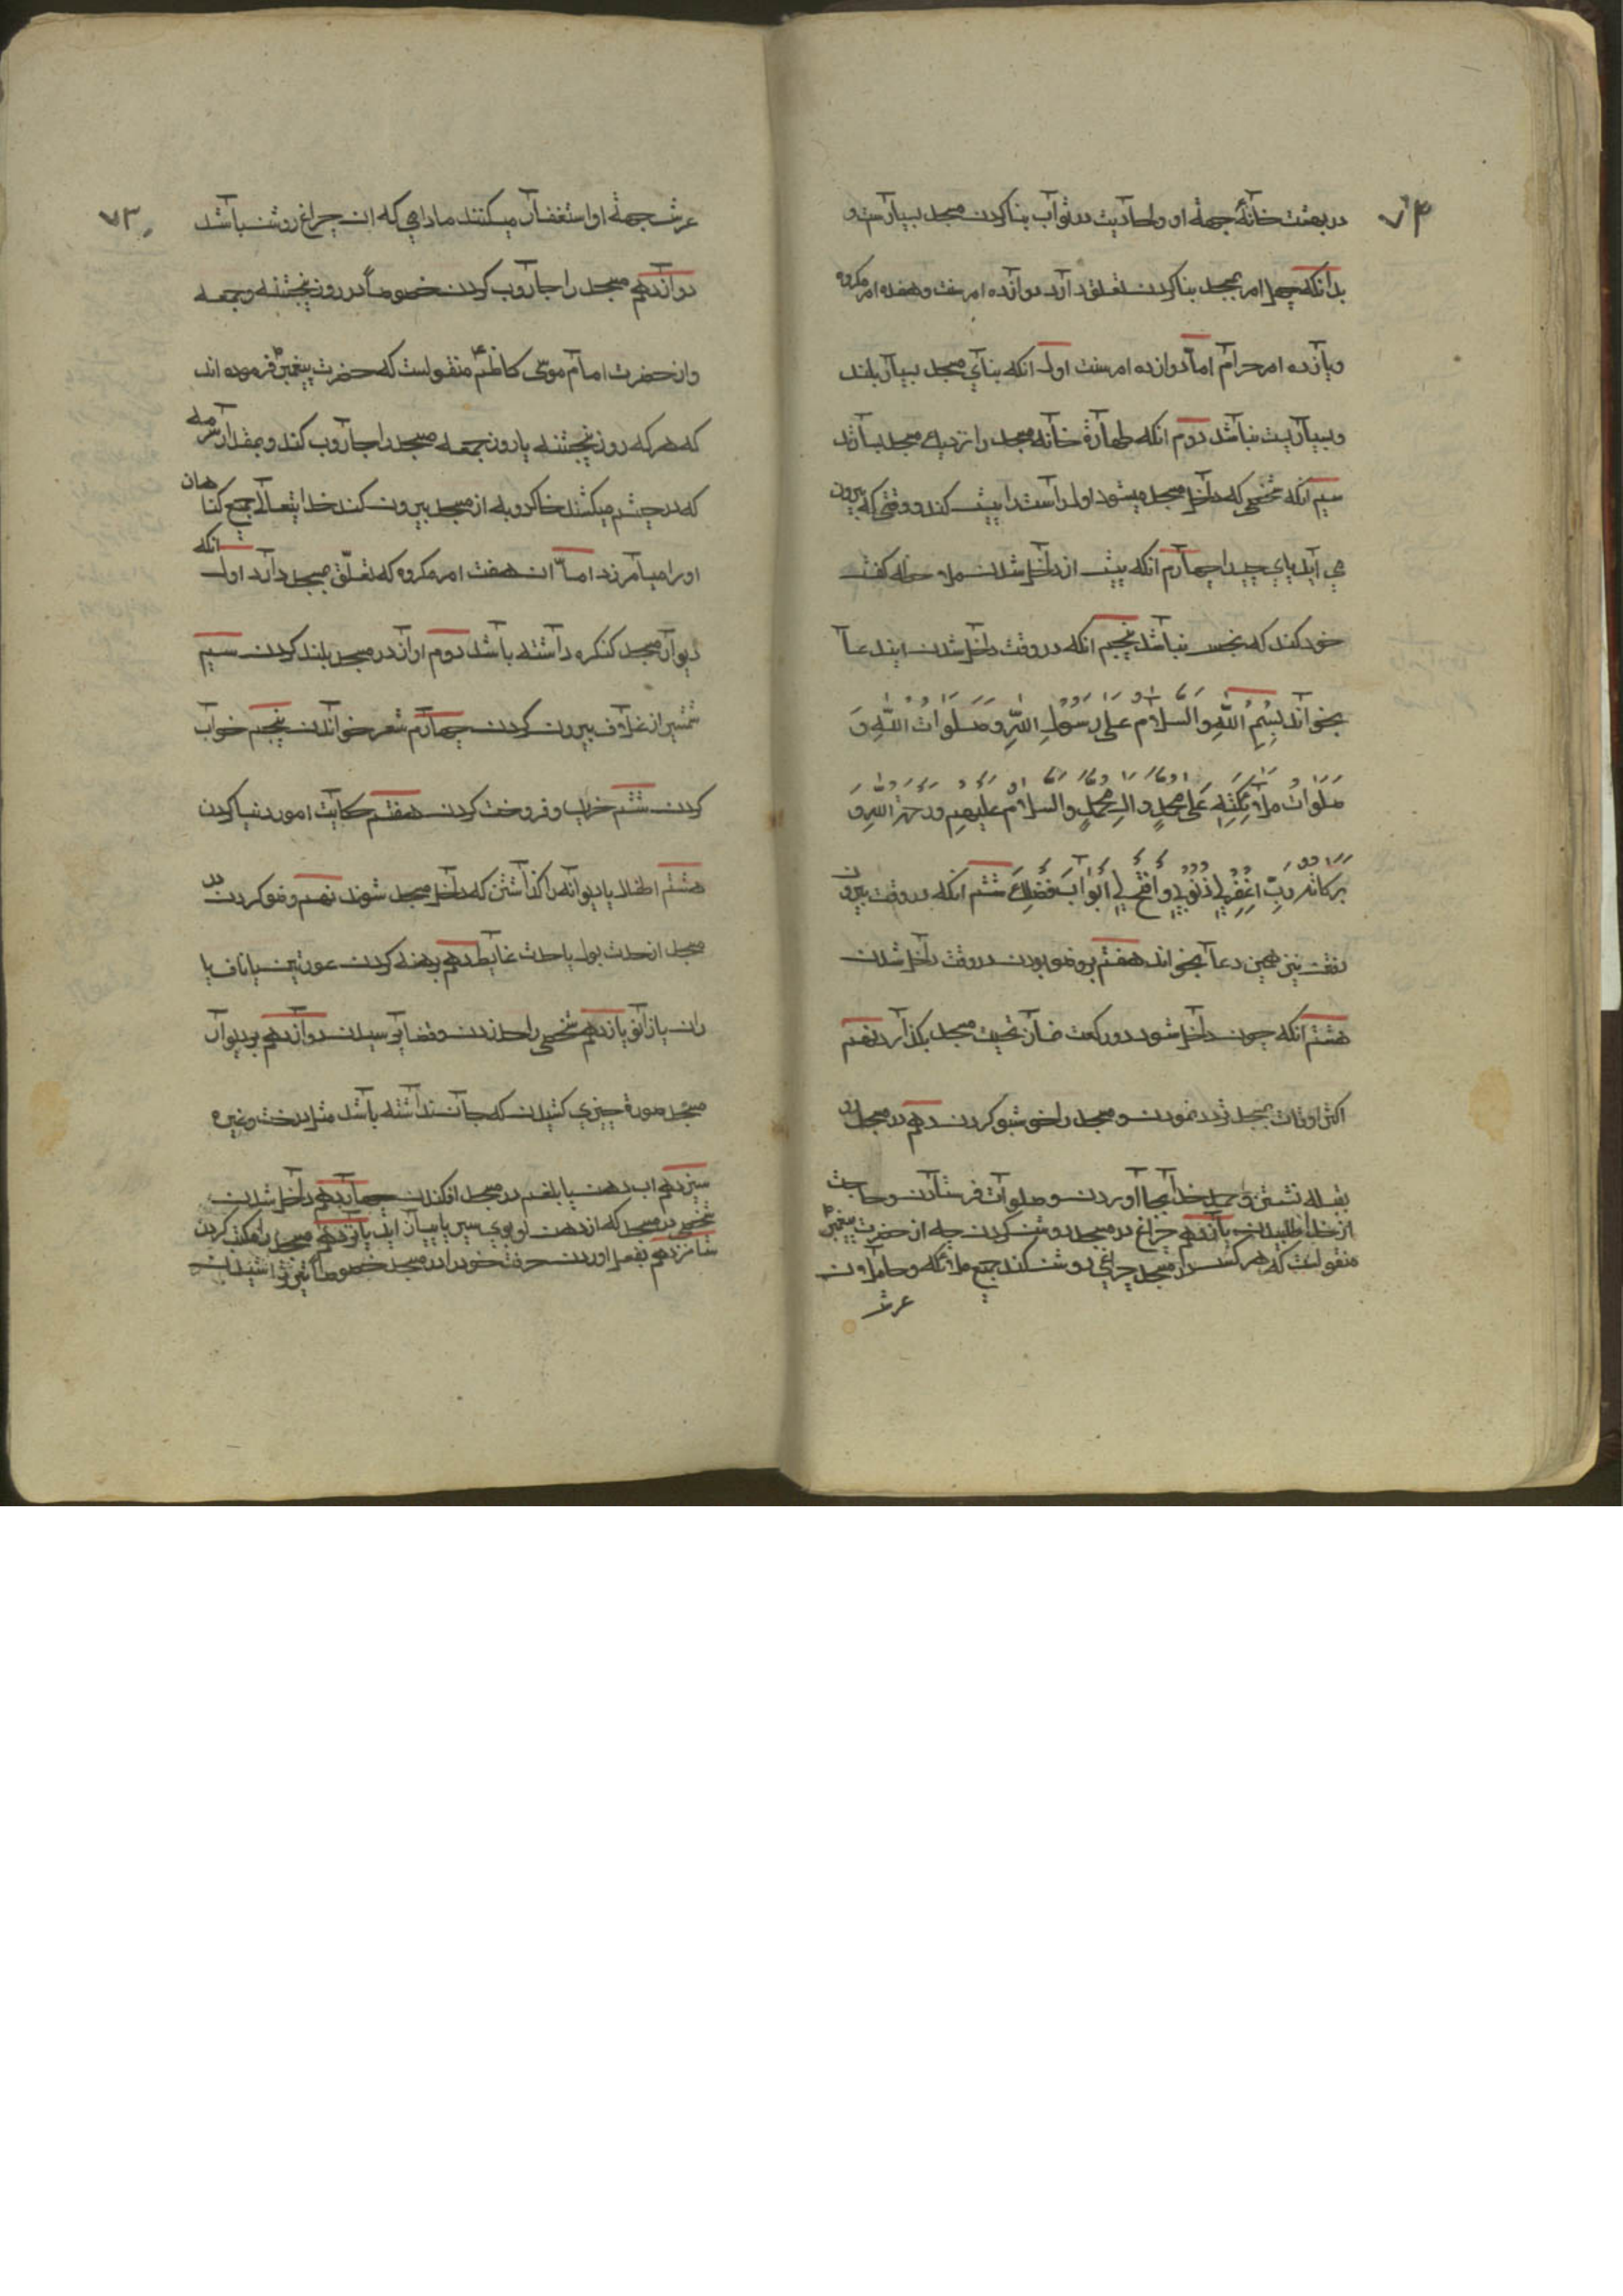 ۷۴
در بهشت خانهٔ جهة او و احادیث در ثواب بنا کردن مسجد بسیارست و
بدانکه چهل امر بمسجد بنا کردن تعلق دارد دوازده امر سنت و هفده امر مکروه
و یازده امر حرام اما دوازده امر سنت اول انکه بنای مسجد بسیار بلند
و بسیار پست نباشد دوم انکه طهارة خانه مسجد را نزدیک مسجد بسازند
سیم انکه شخصی که داخل مسجد میشود اول پای راست را پیش کند و وقتی که بیرون
می آید پای چپ را چهارم انکه پیش از داخل شدن ملاحظه کفش
خود کند که نجس نباشد پنجم انکه در وقت داخل شدن ایندعا
بخواند بِسْمِ اللّهِ والسلامُ عَلى رَسُولِ اللّهِ وَصَلَواتُ اللّهِ وَ
صَلَواتُ مَلائِكَتِهِ عَلى مُحَمَّدٍ وَالِ مُحَمَّدٍ والسلامُ عليهِم ورحمة اللّهِ وَ
بركاته رَبِّ اغْفِرْ لي ذُنُوبي وافْتَحْ لي اَبْوابَ فَضْلِكَ ششم انکه در وقت بیرون
رفتن نیز همین دعا بخواند هفتم با وضو بودن در وقت داخل شدن
هشتم انکه چون داخل شود دو رکعت نماز تحیت مسجد بکذارد نهم
اکثر اوقات بمسجد تردد نمودن و مسجد را خوشبو کردن دهم در مسجد رو
بقبله نشستن و حمد خدا بجا آوردن و صلوات فرستادن و حاجت
از خدا طلبیدن یازدهم چراغ در مسجد روشن کردن چه از حضرت پیغمبر ص
منقولست که هر کس در مسجد چراغی روشن کند جمیع ملائکه و حاملان
عرش
۷۳
عرش جهة او استغفار میکنند مادامی که ان چراغ روشن باشد
دوازدهم مسجد را جاروب کردن خصوصاً در روز پنجشنبه و جمعه
و از حضرت امام موسی کاظم ع منقولست که حضرت پیغمبر ص فرموده اند
که هر که روز پنجشنبه یا روز جمعه مسجد را جاروب کند و بمقدار سرمه
که در چشم میکشند خاکروبه از مسجد بیرون کند خدایتعالی جمیع کناهان
او را میآمرزد اما ان هفت امر مکروه که تعلّق بمسجد دارد اول انکه
دیوار مسجد کنکره داشته باشد دوم اواز در مسجد بلند کردن سیم
شمشیر از غلاف بیرون کردن چهارم شعر خواندن پنجم خواب
کردن ششم خرید و فروخت کردن هفتم حکایت امور دنیا کردن
هشتم اطفال یا دیوانه را کذاشتن که داخل مسجد شوند نهم وضو کردن در
مسجد از حدث بول یا حدث غایط دهم برهنه کردن عورتین یا ناف یا
ران یا زانو یازدهم شخصی را حد زدن و قضا پرسیدن دوازدهم بر دیوار
مسجد صورة چیزی کشیدن که جان نداشته باشد مثل درخت و غیره
سیزدهم اب دهن یا بلغم در مسجد افکندن چهاردهم داخل شدن
شخصی در مسجد که از دهن او بوی سیر یا پیاز اید پانزدهم مسجد را مکتب کردن
شانزدهم بفعل اوردن حرفت خود را در مسجد خصوصاً تیر تراشیدن